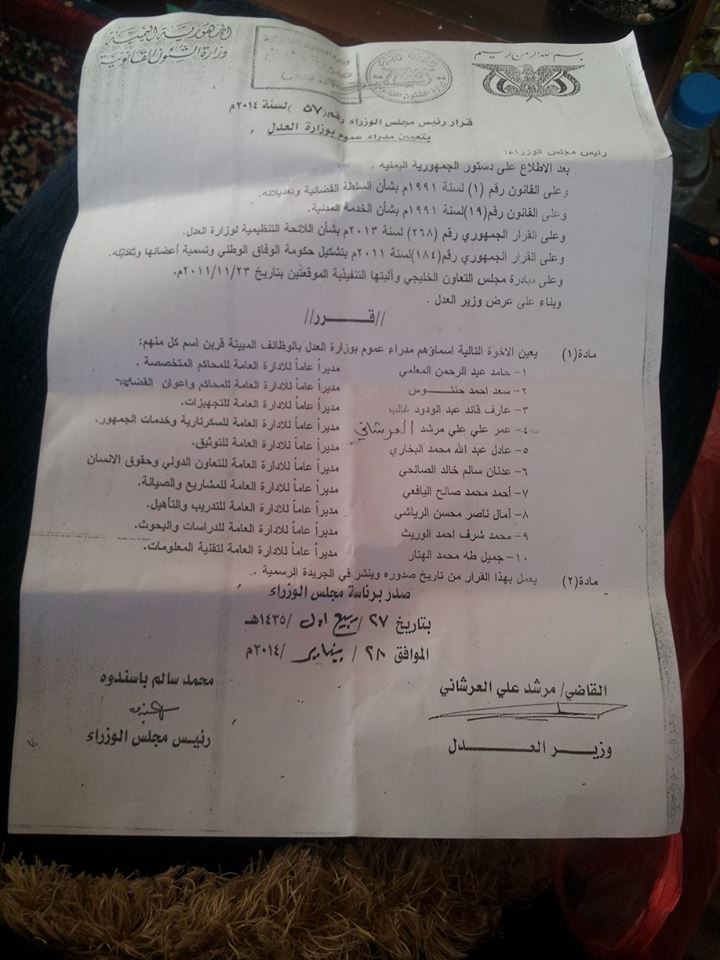 بسم الله الرحمن الرحيم
الجمهورية اليمنية
وزارة الشؤون القانونية
قرار رئيس مجلس الوزراء رقم (٥٧) لسنة ٢٠١٤م
بتعيين مدراء عموم بوزارة العدل
رئيس مجلس الوزراء:
بعد الاطلاع على دستور الجمهورية اليمنية .
وعلى القانون رقم (١) لسنة ١٩٩١م بشأن السلطة القضائية وتعديلاته.
وعلى القانون رقم (١٩) لسنة ١٩٩١م بشأن الخدمة المدنية.
وعلى القرار الجمهوري رقم (٢٦٨) لسنة ٢٠١٣م بشأن اللائحة التنظيمية لوزارة العدل.
وعلى القرار الجمهوري رقم (١٨٤) لسنة ٢٠١١م بتشكيل حكومة الوفاق الوطني وتسمية أعضائها وتعديله.
وعلى مبادرة مجلس التعاون الخليجي وآليتها التنفيذية الموقعتين بتاريخ ٢٠١١/١١/٢٣م.
وبناء على عرض وزير العدل .
//قـــــرر//
مادة(١) يعين الاخوة التالية اسماؤهم مدراء عموم بوزارة العدل بالوظائف المبينة قرين اسم كل منهم:
١- حامد عبد الرحمن المعلمي مديراً عاماً للادارة العامة للمحاكم المتخصصة .
٢- سعد احمد حنتـــوس مديراً عاماً للادارة العامة للمحاكم واعوان القضاء.
٣- عارف قائد عبد الودود غالب مديراً عاماً للادارة العامة للتجهيزات.
٤- عمر علي علي مرشد العرشاني مديراً عاماً للادارة العامة للسكرتارية وخدمات الجمهور.
٥- عادل عبد الله محمد البخاري مديراً عاماً للادارة العامة للتوثيق.
٦- عدنان سالم خالد الصالحي مديراً عاماً للادارة العامة للتعاون الدولي وحقوق الانسان
٧- أحمد محمد صالح اليافعي مديراً عاماً للادارة العامة للمشاريع والصيانة.
٨- آمال ناصر محسن الرياشي مديراً عاماً للادارة العامة للتدريب والتأهيل.
٩- محمد شرف احمد الوريث مديراً عاماً للادارة العامة للدراسات والبحوث.
١٠- جميل طه محمد الهتار مديراً عاماً للادارة العامة لتقنية المعلومات.
مادة(٢) يعمل بهذا القرار من تاريخ صدوره وينشر في الجريدة الرسمية .
صدر برئاسة مجلس الوزراء
بتاريخ ٢٧ /ربيع اول /١٤٣٥هـ
الموافق ٢٨ / يناير /٢٠١٤م
القاضي/ مرشد علي العرشاني
وزيـر العـــــدل
محمد سالم باسندوه
رئيس مجلس الوزراء